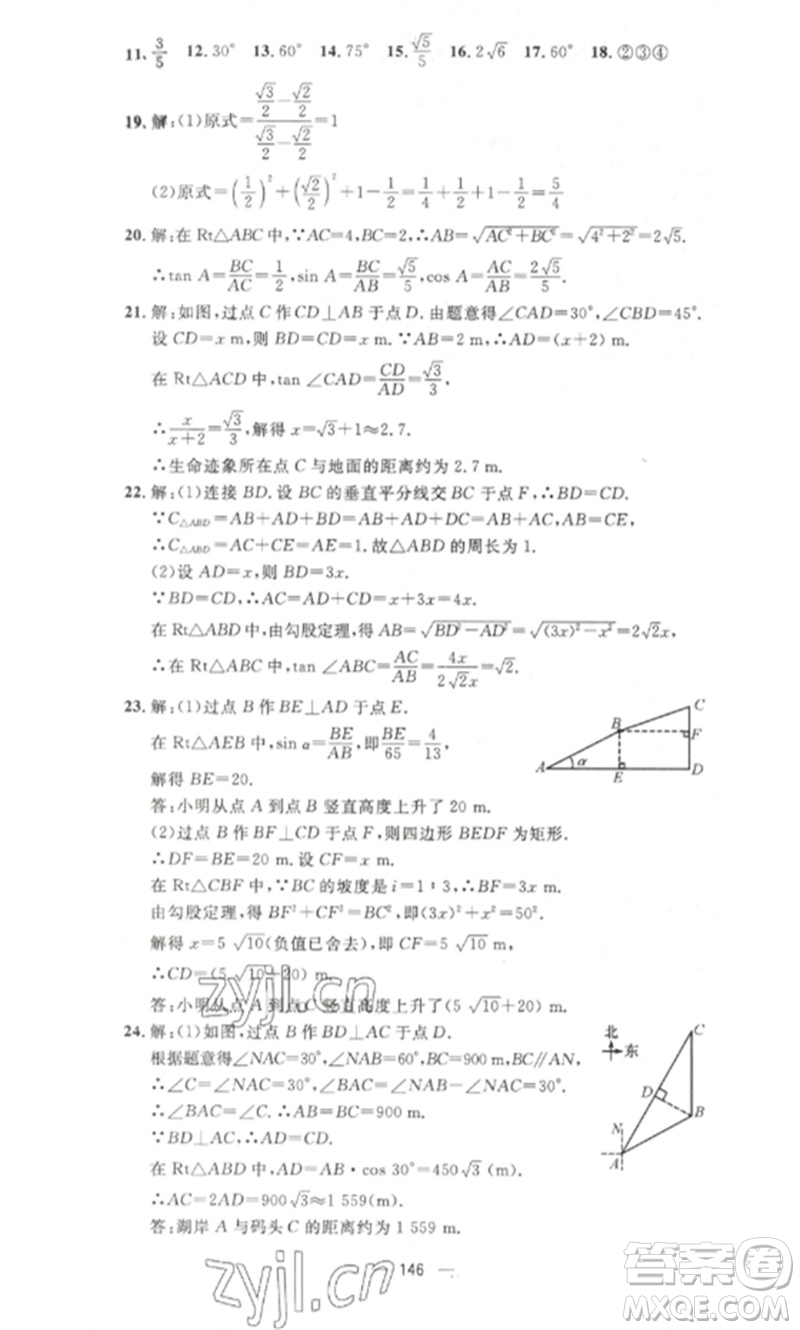 11. 3/5 12. 30° 13. 60° 14. 75° 15. √5/5 16. 2√6 17. 60° 18. ②③④
19. 解:(1)原式=(√3/2-√2/2)/(√3/2-√2/2)=1
(2)原式=(1/2)²+(√2/2)²+1-1/2=1/4+1/2+1-1/2=5/4
20. 解:在 Rt△ABC 中,∵AC=4,BC=2,∴AB=√(AC²+BC²)=√(4²+2²)=2√5.
∴tan A=BC/AC=1/2,sin A=BC/AB=√5/5,cos A=AC/AB=2√5/5.
21. 解:如图,过点 C 作 CD⊥AB 于点 D. 由题意得∠CAD=30°,∠CBD=45°.
设 CD=x m,则 BD=CD=x m. ∵AB=2 m,∴AD=(x+2) m.
在 Rt△ACD 中,tan ∠CAD=CD/AD=√3/3,
∴x/(x+2)=√3/3,解得 x=√3+1≈2.7.
∴生命迹象所在点 C 与地面的距离约为 2.7 m.
22. 解:(1)连接 BD. 设 BC 的垂直平分线交 BC 于点 F,∴BD=CD.
∵C△ABD=AB+AD+BD=AB+AD+DC=AB+AC,AB=CE,
∴C△ABD=AC+CE=AE=1. 故△ABD 的周长为 1.
(2)设 AD=x,则 BD=3x.
∵BD=CD,∴AC=AD+CD=x+3x=4x.
在 Rt△ABD 中,由勾股定理,得 AB=√(BD²-AD²)=√((3x)²-x²)=2√2x,
∴在 Rt△ABC 中,tan ∠ABC=AC/AB=4x/(2√2x)=√2.
23. 解:(1)过点 B 作 BE⊥AD 于点 E.
在 Rt△AEB 中,sin α=BE/AB,即BE/65=4/13,
解得 BE=20.
答:小明从点 A 到点 B 竖直高度上升了 20 m.
A B C D E F α
(2)过点 B 作 BF⊥CD 于点 F,则四边形 BEDF 为矩形.
∴DF=BE=20 m. 设 CF=x m.
在 Rt△CBF 中,∵BC 的坡度是 i=1∶3,∴BF=3x m.
由勾股定理,得 BF²+CF²=BC²,即(3x)²+x²=50².
解得 x=5√10(负值已舍去),即 CF=5√10 m.
∴CD=(5√10+20) m.
答:小明从点 A 到点 C 竖直高度上升了(5√10+20) m.
24. 解:(1)如图,过点 B 作 BD⊥AC 于点 D.
根据题意得∠NAC=30°,∠NAB=60°,BC=900 m,BC∥AN,
∴∠C=∠NAC=30°,∠BAC=∠NAB-∠NAC=30°.
∴∠BAC=∠C. ∴AB=BC=900 m.
∵BD⊥AC,∴AD=CD.
在 Rt△ABD 中,AD=AB·cos 30°=450√3 (m).
∴AC=2AD=900√3≈1 559 (m).
答:湖岸 A 与码头 C 的距离约为 1 559 m.
北 东 C D B N A
zyjl.cn
146
zyjl.cn
答案圈
MXQE.COM